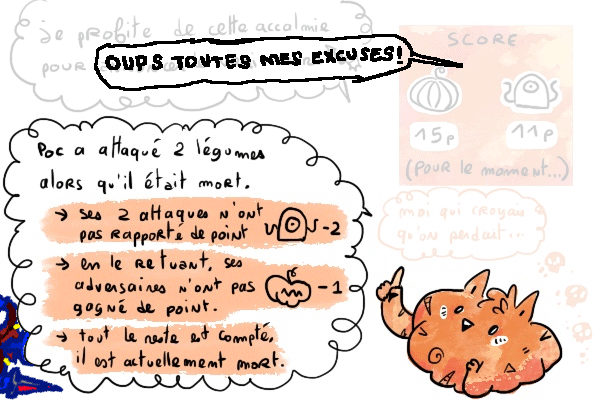 je profite de cette accalmie
pour
OUPS TOUTES MES EXCUSES!
SCORE
15p
11p
(pour le moment...)
moi qui croyais
qu'on perdait...
Poc a attaqué 2 légumes
alors qu'il était mort.
→ ses 2 attaques n'ont
pas rapporté de point
-2
→ en le retuant, ses
adversaires n'ont pas
gagné de point.
-1
→ tout le reste est compté,
il est actuellement mort.